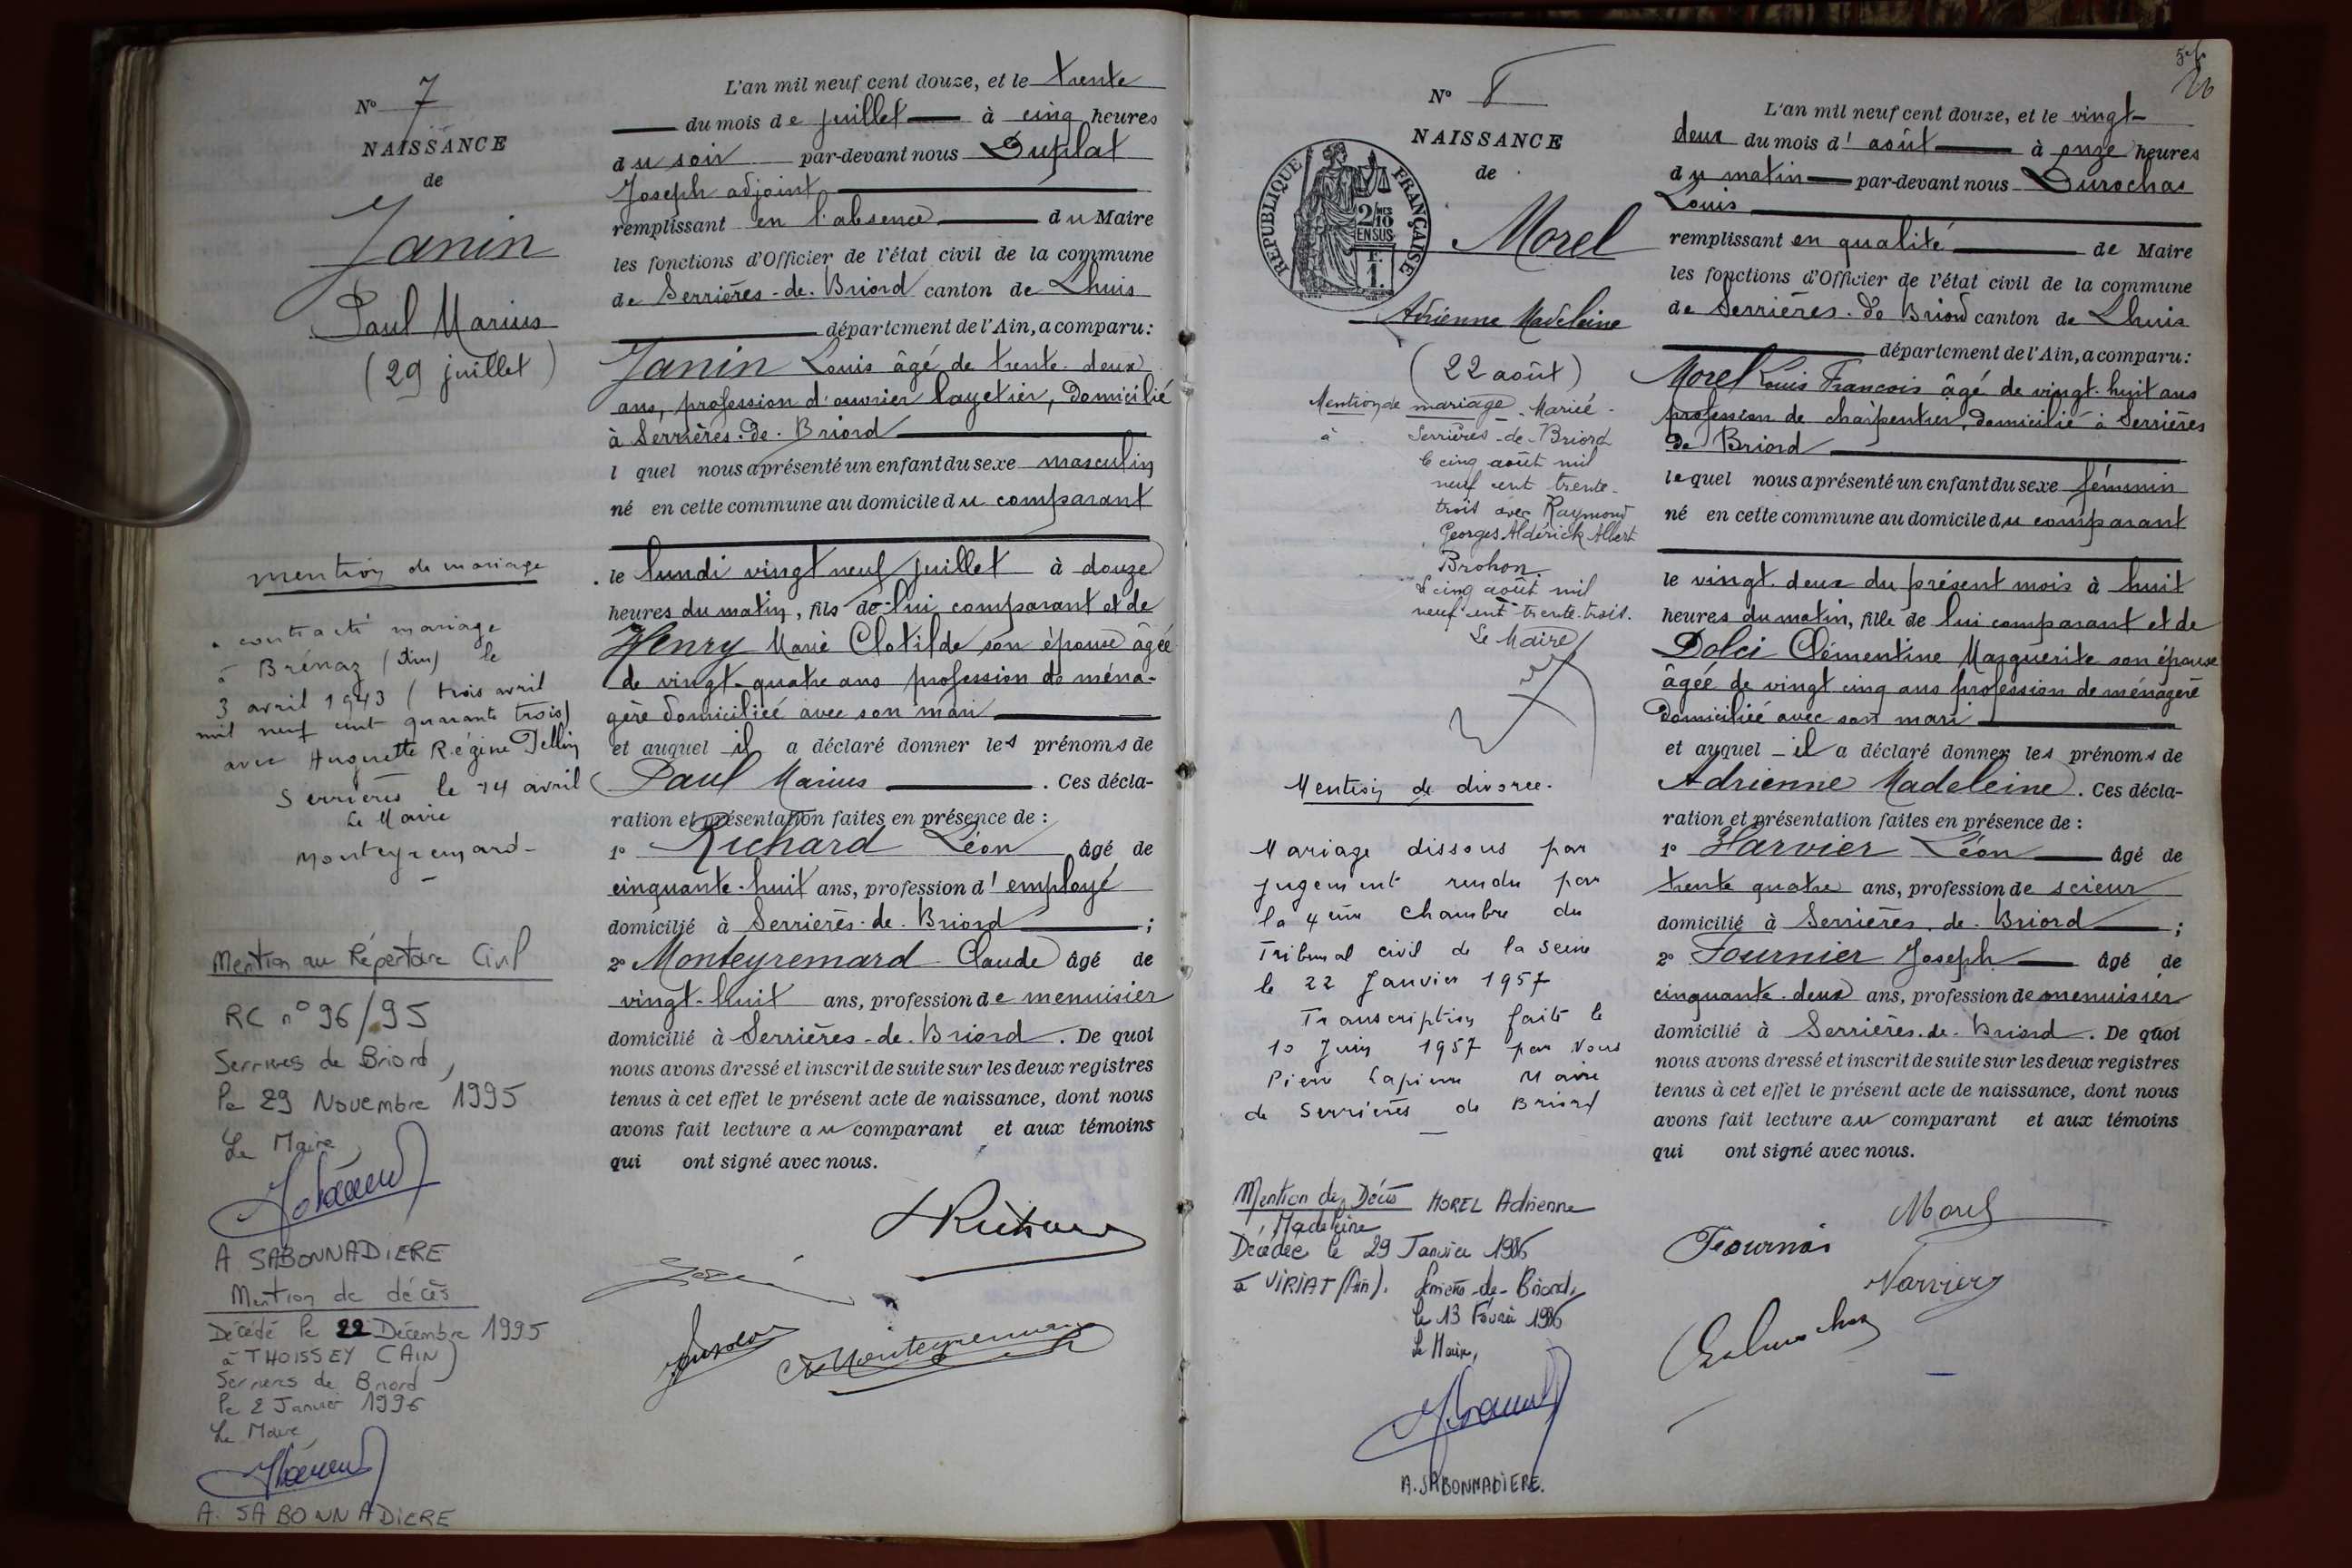 N° 7
NAISSANCE
de
Janin
Paul Marius
(29 juillet)
mention de mariage
a contracté mariage
à Brénaz (Ain) le
3 avril 1943 (trois avril
mil neuf cent quarante trois)
avec Huguette Régine
Serrières le 14 avril
Le Maire
Monteyremard
Mention au Répertoire Civil
RC n° 96/95
Serrières de Briord,
le 29 Novembre 1995
Le Maire,
A SABONNADIERE
Mention de décès
Décédé le 22 Décembre 1995
à THOISSEY (AIN)
Serrières de Briord
le 2 Janvier 1996
Le Maire,
A. SABONNADIERE
L'an mil neuf cent douze, et le trente
du mois de juillet à cinq heures
du soir par-devant nous Duplat
Joseph adjoint
remplissant en l'absence du Maire
les fonctions d'Officier de l'état civil de la commune
de Serrières-de-Briord canton de Lhuis
département de l'Ain, a comparu:
Janin Louis âgé de trente-deux
ans, profession d'ouvrier layetier, domicilié
à Serrières-de-Briord
l quel nous a présenté un enfant du sexe masculin
né en cette commune au domicile du comparant
le lundi vingt neuf juillet à douze
heures du matin, fils de lui comparant et de
Henry Marie Clotilde son épouse âgée
de vingt-quatre ans profession de ména-
gère domiciliée avec son mari
et auquel il a déclaré donner les prénoms de
Paul Marius. Ces décla-
ration et présentation faites en présence de :
1° Richard Léon âgé de
cinquante-huit ans, profession d'employé
domicilié à Serrières-de-Briord ;
2° Monteyremard Claude âgé de
vingt-huit ans, profession de menuisier
domicilié à Serrières-de-Briord. De quoi
nous avons dressé et inscrit de suite sur les deux registres
tenus à cet effet le présent acte de naissance, dont nous
avons fait lecture au comparant et aux témoins
qui ont signé avec nous.
Monteyremard
26
N° 8
NAISSANCE
de
REPUBLIQUE FRANÇAISE
2/10MES
EN SUS
F.
1.
Morel
Adrienne Madeleine
(22 août)
Mention de mariage. Mariée
à Serrières-de-Briord
le cinq août mil
neuf cent trente-
trois avec Raymond
Georges Aldérick Albert
Brohon
Le cinq août mil
neuf cent trente-trois.
Le Maire
Mention de divorce.
Mariage dissous par
jugement rendu par
la 4eme Chambre du
Tribunal civil de la Seine
le 22 Janvier 1957
Transcription faite le
10 Juin 1957 par Nous
Pierre Lapierre Maire
de Serrières de Briord
Mention de Décès MOREL Adrienne
Madeleine
Décédée le 29 Janvier 1986
à VIRIAT (Ain). Serrières-de-Briord,
le 13 Février 1986
Le Maire,
A. SABONNADIERE.
L'an mil neuf cent douze, et le vingt-
deux du mois d'août à onze heures
du matin par-devant nous Durochas
Louis
remplissant en qualité de Maire
les fonctions d'Officier de l'état civil de la commune
de Serrières-de Briord canton de Lhuis
département de l'Ain, a comparu:
Morel Louis François âgé de vingt-huit ans
profession de charpentier, domicilié à Serrières
de Briord
lequel nous a présenté un enfant du sexe féminin
né en cette commune au domicile du comparant
le vingt-deux du présent mois à huit
heures du matin, fille de lui comparant et de
Dolci Clémentine Marguerite son épouse
âgée de vingt cinq ans profession de ménagère
domiciliée avec son mari
et auquel il a déclaré donner les prénoms de
Adrienne Madeleine. Ces décla-
ration et présentation faites en présence de :
1° Harvier Léon âgé de
trente quatre ans, profession de scieur
domicilié à Serrières-de-Briord ;
2° Fournier Joseph âgé de
cinquante-deux ans, profession de menuisier
domicilié à Serrières-de-Briord. De quoi
nous avons dressé et inscrit de suite sur les deux registres
tenus à cet effet le présent acte de naissance, dont nous
avons fait lecture au comparant et aux témoins
qui ont signé avec nous.
Morel